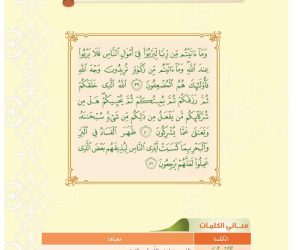 وَمَآ ءَاتَيْتُم مِّن رِّبًا لِّيَرْبُوَا۟ فِىٓ أَمْوَٰلِ ٱلنَّاسِ فَلَا يَرْبُوا۟
عِندَ ٱللَّهِ وَمَآ ءَاتَيْتُم مِّن زَكَوٰةٍ تُرِيدُونَ وَجْهَ ٱللَّهِ
فَأُو۟لَٰٓئِكَ هُمُ ٱلْمُضْعِفُونَ ٣٩ ٱللَّهُ ٱلَّذِى خَلَقَكُمْ
ثُمَّ رَزَقَكُمْ ثُمَّ يُمِيتُكُمْ ثُمَّ يُحْيِيكُمْ هَلْ مِن
شُرَكَآئِكُم مَّن يَفْعَلُ مِن ذَٰلِكُم مِّن شَىْءٍ سُبْحَٰنَهُۥ
وَتَعَٰلَىٰ عَمَّا يُشْرِكُونَ ٤٠ ظَهَرَ ٱلْفَسَادُ فِى ٱلْبَرِّ
وَٱلْبَحْرِ بِمَا كَسَبَتْ أَيْدِى ٱلنَّاسِ لِيُذِيقَهُم بَعْضَ ٱلَّذِى
عَمِلُوا۟ لَعَلَّهُمْ يَرْجِعُونَ ٤١
معاني الكلمات
الكلمة معناها